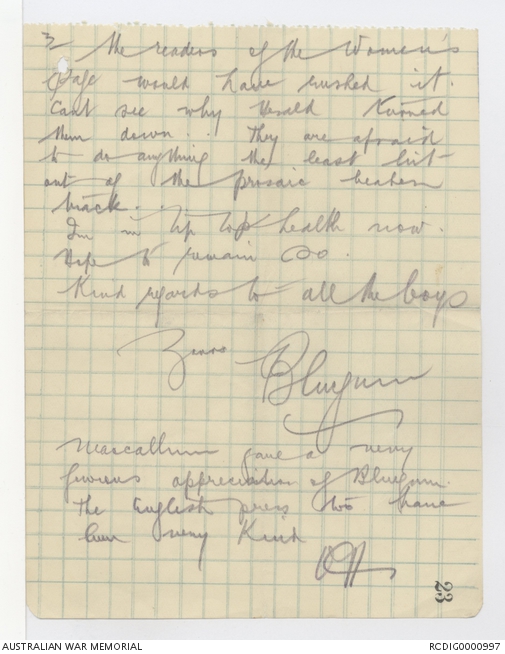 3
The readers of the Women's
Page would have rushed it.
Cant see why Herald turned
them down... They are afraid
to do anything the least bit
out of the prosaic beaten
track.
I'm in tip top health now.
Hope to remain so.
Kind regards to all the boys
Yours
Bluegum
Maccallum gave a very
generous appreciation of Bluegum.
The English press too have
been very Kind
OH
23
AUSTRALIAN WAR MEMORIAL
RCDIG0000997